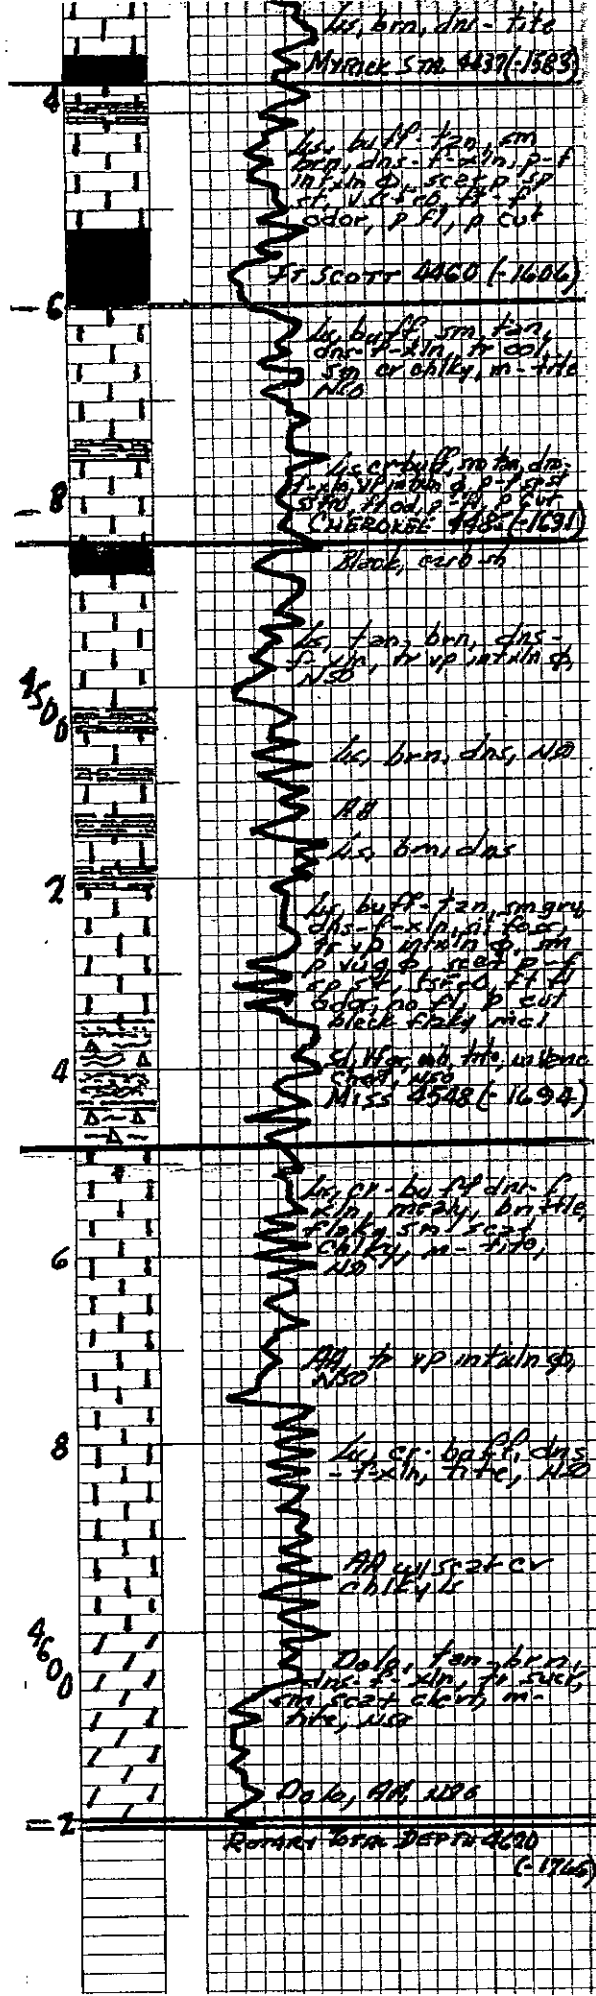 Ls, brn, dns - tite
MYRICK STA 4437 (-1583)
4
Ls, buff-tan, sm
brn, dns-f-xln, p-f
intxln Ø, scat p sp
st, ft-f
odor, p fl, p cut
FT SCOTT 4460 (-1606)
- 6
Ls, buff, sm tan,
dns-f-xln, tr ool,
sm cr chlky, m-tite
NSO
Ls cr buff, sm tan, dns
f-xln, vp intxln Ø, p-f sp st
p cut
- 8
CHEROKEE 4485 (-1631)
Black, carb sh
Ls, tan, brn, dns-
f-xln, tr vp intxln Ø,
NSO
4500
Ls, brn, dns, NSO
AA
Ls, brn, dns
2
Ls, buff-tan, sm gry
dns-f-xln, sl foss,
tr vp intxln Ø, sm
p vug Ø, scat p-f
sp st, ft fl
odor, no fl, p cut
black flaky mat
tite,
4
chert, NSO
MISS 4548 (-1694)
Ls, cr-buff dns-f
xln, mealy, brittle,
flaky, sm scat
6
chlky, m-tite,
NSO
AA, tr vp intxln Ø,
NSO
8
Ls, cr-buff, dns
-f-xln, tite, NSO
AA w/ scat cr
chlky ls
4600
Dolo, tan-brn,
dns-f-xln, tr sucr,
sm scat chert, m-
tite, NSO
Dolo, AA, NSO
- 2
ROTARY TOTAL DEPTH 4620
(-1766)